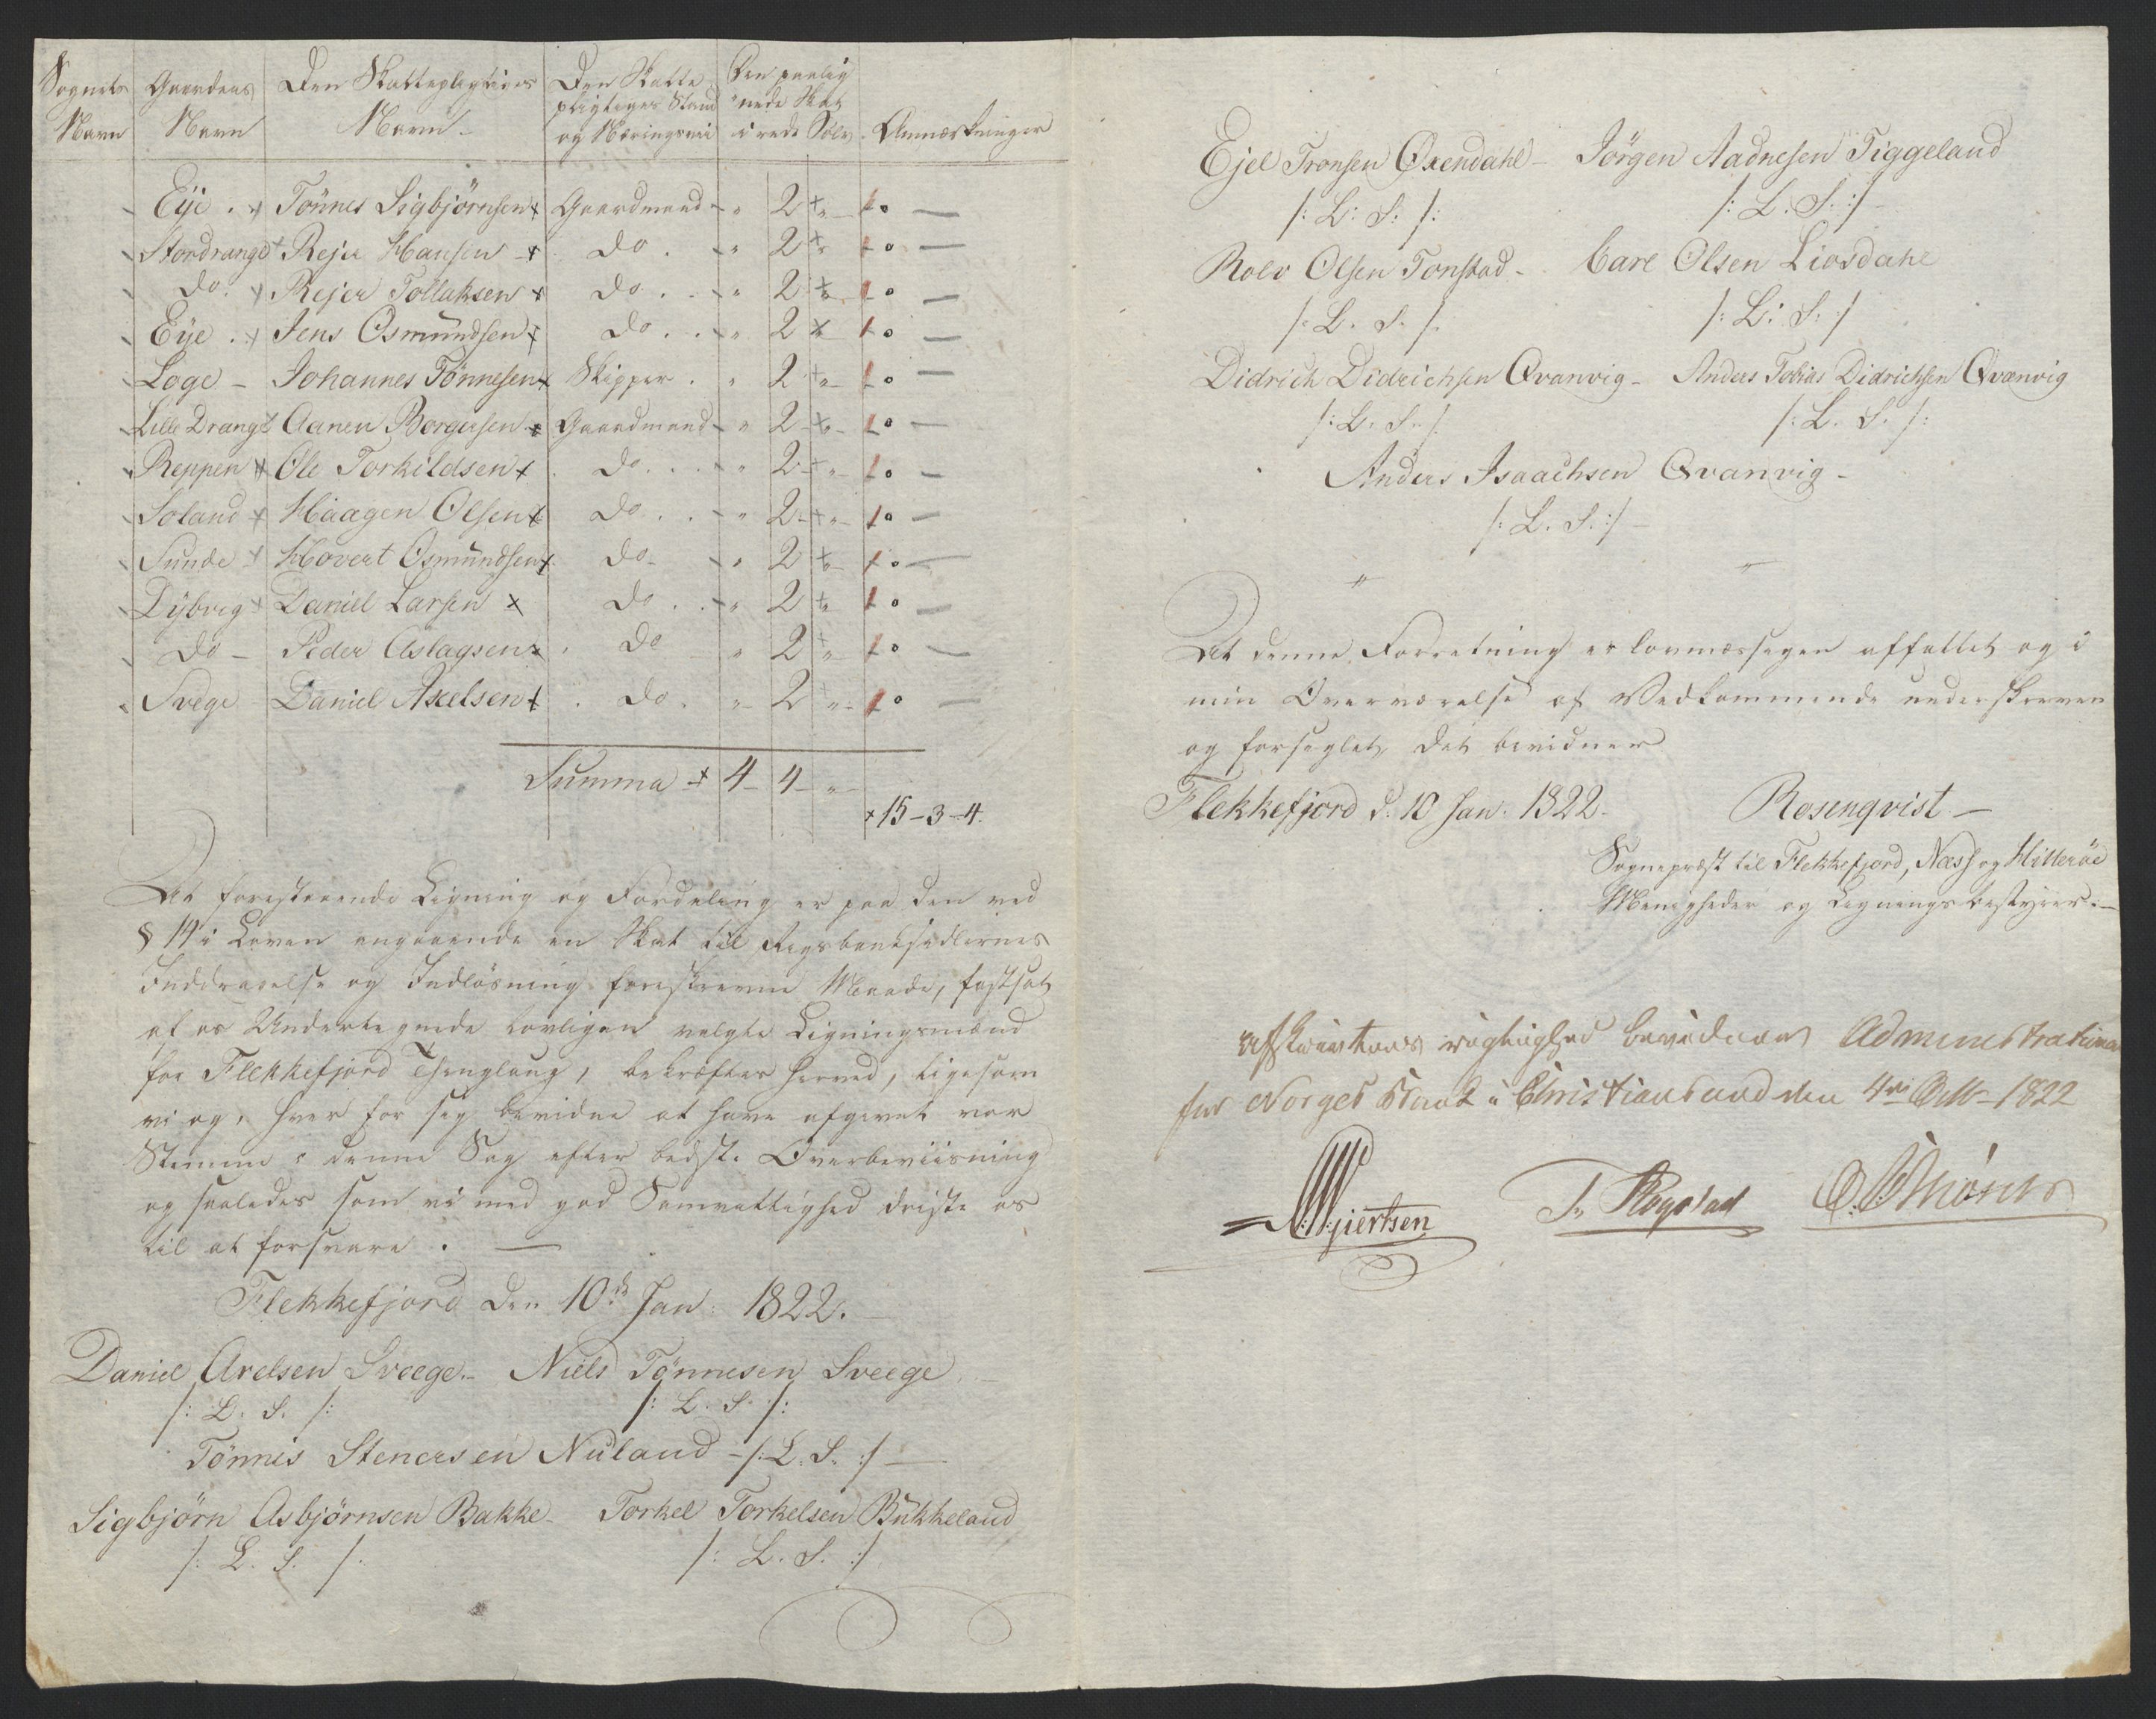 Sognets Navn | Gaardens Navn | Den Skattepligtiges Navn | Den Skattepligtiges Stand og Næringsvei | Den paalignede Skat i rede Sølv | Anmærkninger
Eye . | Tönnes Sigbjörnsen | Gaardmand | " 2 " | 10 —
Stordrange | Rejer Hansen | do . | " 2 " | 10 —
do. | Rejer Tollaksen | do . | " 2 " | 10 —
Eye . | Jens Osmundsen | do . | " 2 " | 10 —
Loge – | Johannes Tönnesen | Skipper . | " 2 " | 10 —
Lille Drange | Aanen Borgersen | Gaardmand | " 2 " | 10 —
Reppen | Ole Torkildsen | do . | " 2 " | 10 —
Soland | Haagen Olsen | do . | " 2 " | 10 —
Sunde | Hovert Osmundsen | do – | " 2 " | 10 —
Dybvig | Daniel Larsen | do . | " 2 " | 10 —
do – | Peder Aslagsen | do | " 2 " | 10 —
Svege | Daniel Axelsen | do . | " 2 " | 10 —
Summa 4 – 4 – "
15 – 3 – 4.
At forestaaende Ligning og Fordeling er paa den ved
§ 14 i Loven angaaende en Skat til Rigsbanksedlernes
Inddragelse og Indlösning foreskrevne Maade, fastsat
af os Undertegnede lovligen valgte Ligningsmænd
for Flekkefjord Thinglaug, bekræftes herved, ligesom
vi og, hver for sig bevidne at have afgivet vor
Stemme i denne Sag efter bedste Overbeviisning
og saaledes som vi med god Samvittighed driste os
til at forsvare . —
Flekkefjord den 10de Jan: 1822.
Daniel Axelsen Sveege. – Niels Tönnesen Sveege
/: L. S. /: /: L. S. /:
Tönnes Stenersen Nuland – /: L. S. :/ —
Sigbjörn Asbjörnsen Bakke – Torkel Torkelsen Bukkeland
/: L. S. /: /: L. S. :/
Ejel Tronsen Oxendahl – Jörgen Aadnesen Tiggeland
/: L: S: /: /: L. S. :/ –
Rolv Olsen Tonstad – Carl Olsen Liosdahl
/: L. S. /: /: L: S: :/
Didrich Didrichsen Qvanvig – Anders Tobias Didrichsen Qvanvig
/: L. S. /: /: L. S. /:
Anders Isaachsen Qvanvig –
/: L. S. :/ –
At denne Forretning er lovmæssigen affattet og i
min Overværelse af Vedkommende underskreven
og forseglet, det bevidner
Flekkefjord d. 10 Jan: 1822. Rosenqvist –
Sognepræst til Flekkefjord, Næss og Hitteröe
Menigheder og Ligningsbestyrer. –
Afskriftens rigtighed bevidner Administrationen
for Norges Bank i Christiansand den 4de 1822
Hjertsen T. Rogstad